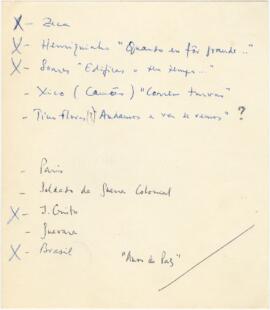 X - Zeca
X - Henriquinho "Quando eu fôr grande.."
X - Soares "Edifica o teu tempo.."
- Xico (Camões) "Correm turvas"
- Pinus flores(?) Andamos a ver se vamos" ?
- Paris
- Soldado da Guerra Colonial
X - J. Grito
- Guevara
X - Brasil "Anos de Paz"